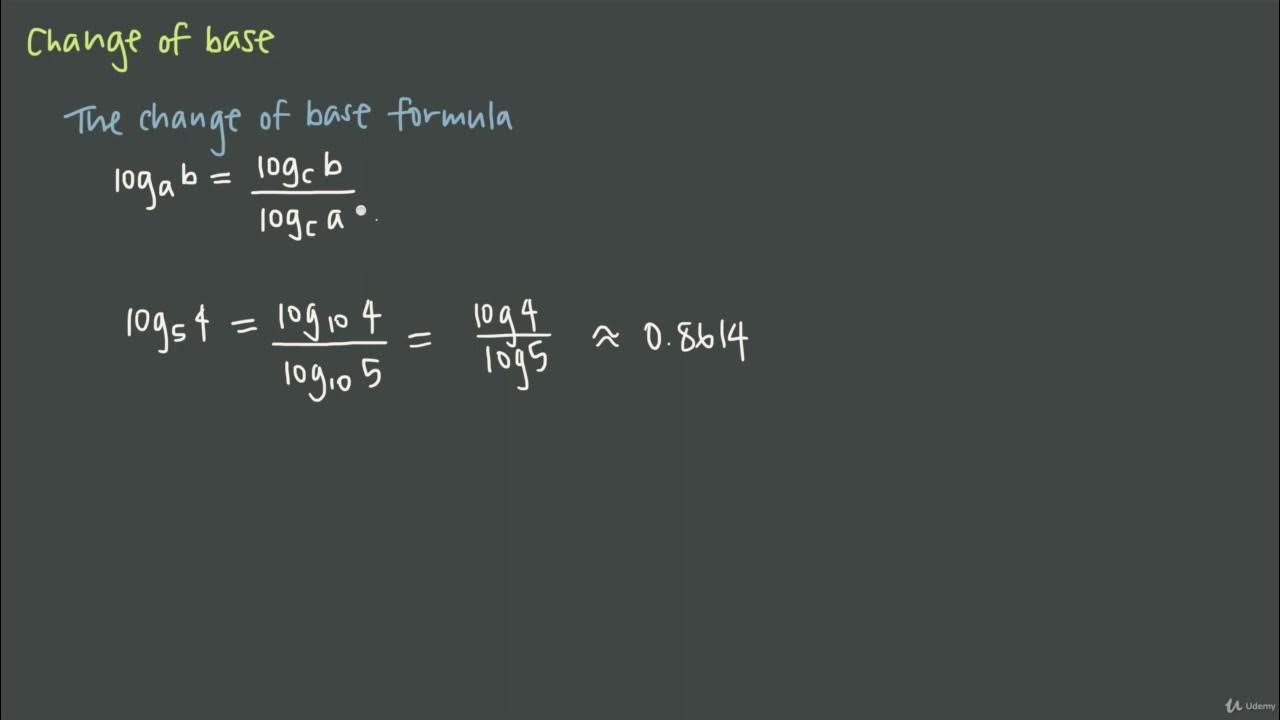 Change of base
The change of base formula
logₐ b = log_c b / log_c a .
log₅ 4 = log₁₀ 4 / log₁₀ 5 = log 4 / log 5 ≈ 0.8614
Udemy